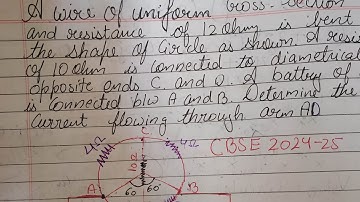 A wire of uniform cross-section
and resistance of 12 Ohm is bent
the shape of Circle as shown. A resis
of 10 Ohm is connected to diametrical
opposite ends C and O. A battery of
is connected b/w A and B. Determine the
Current flowing through arm AD
CBSE 2024-25
C
4Ω
4Ω
10Ω
A
60°
60°
B